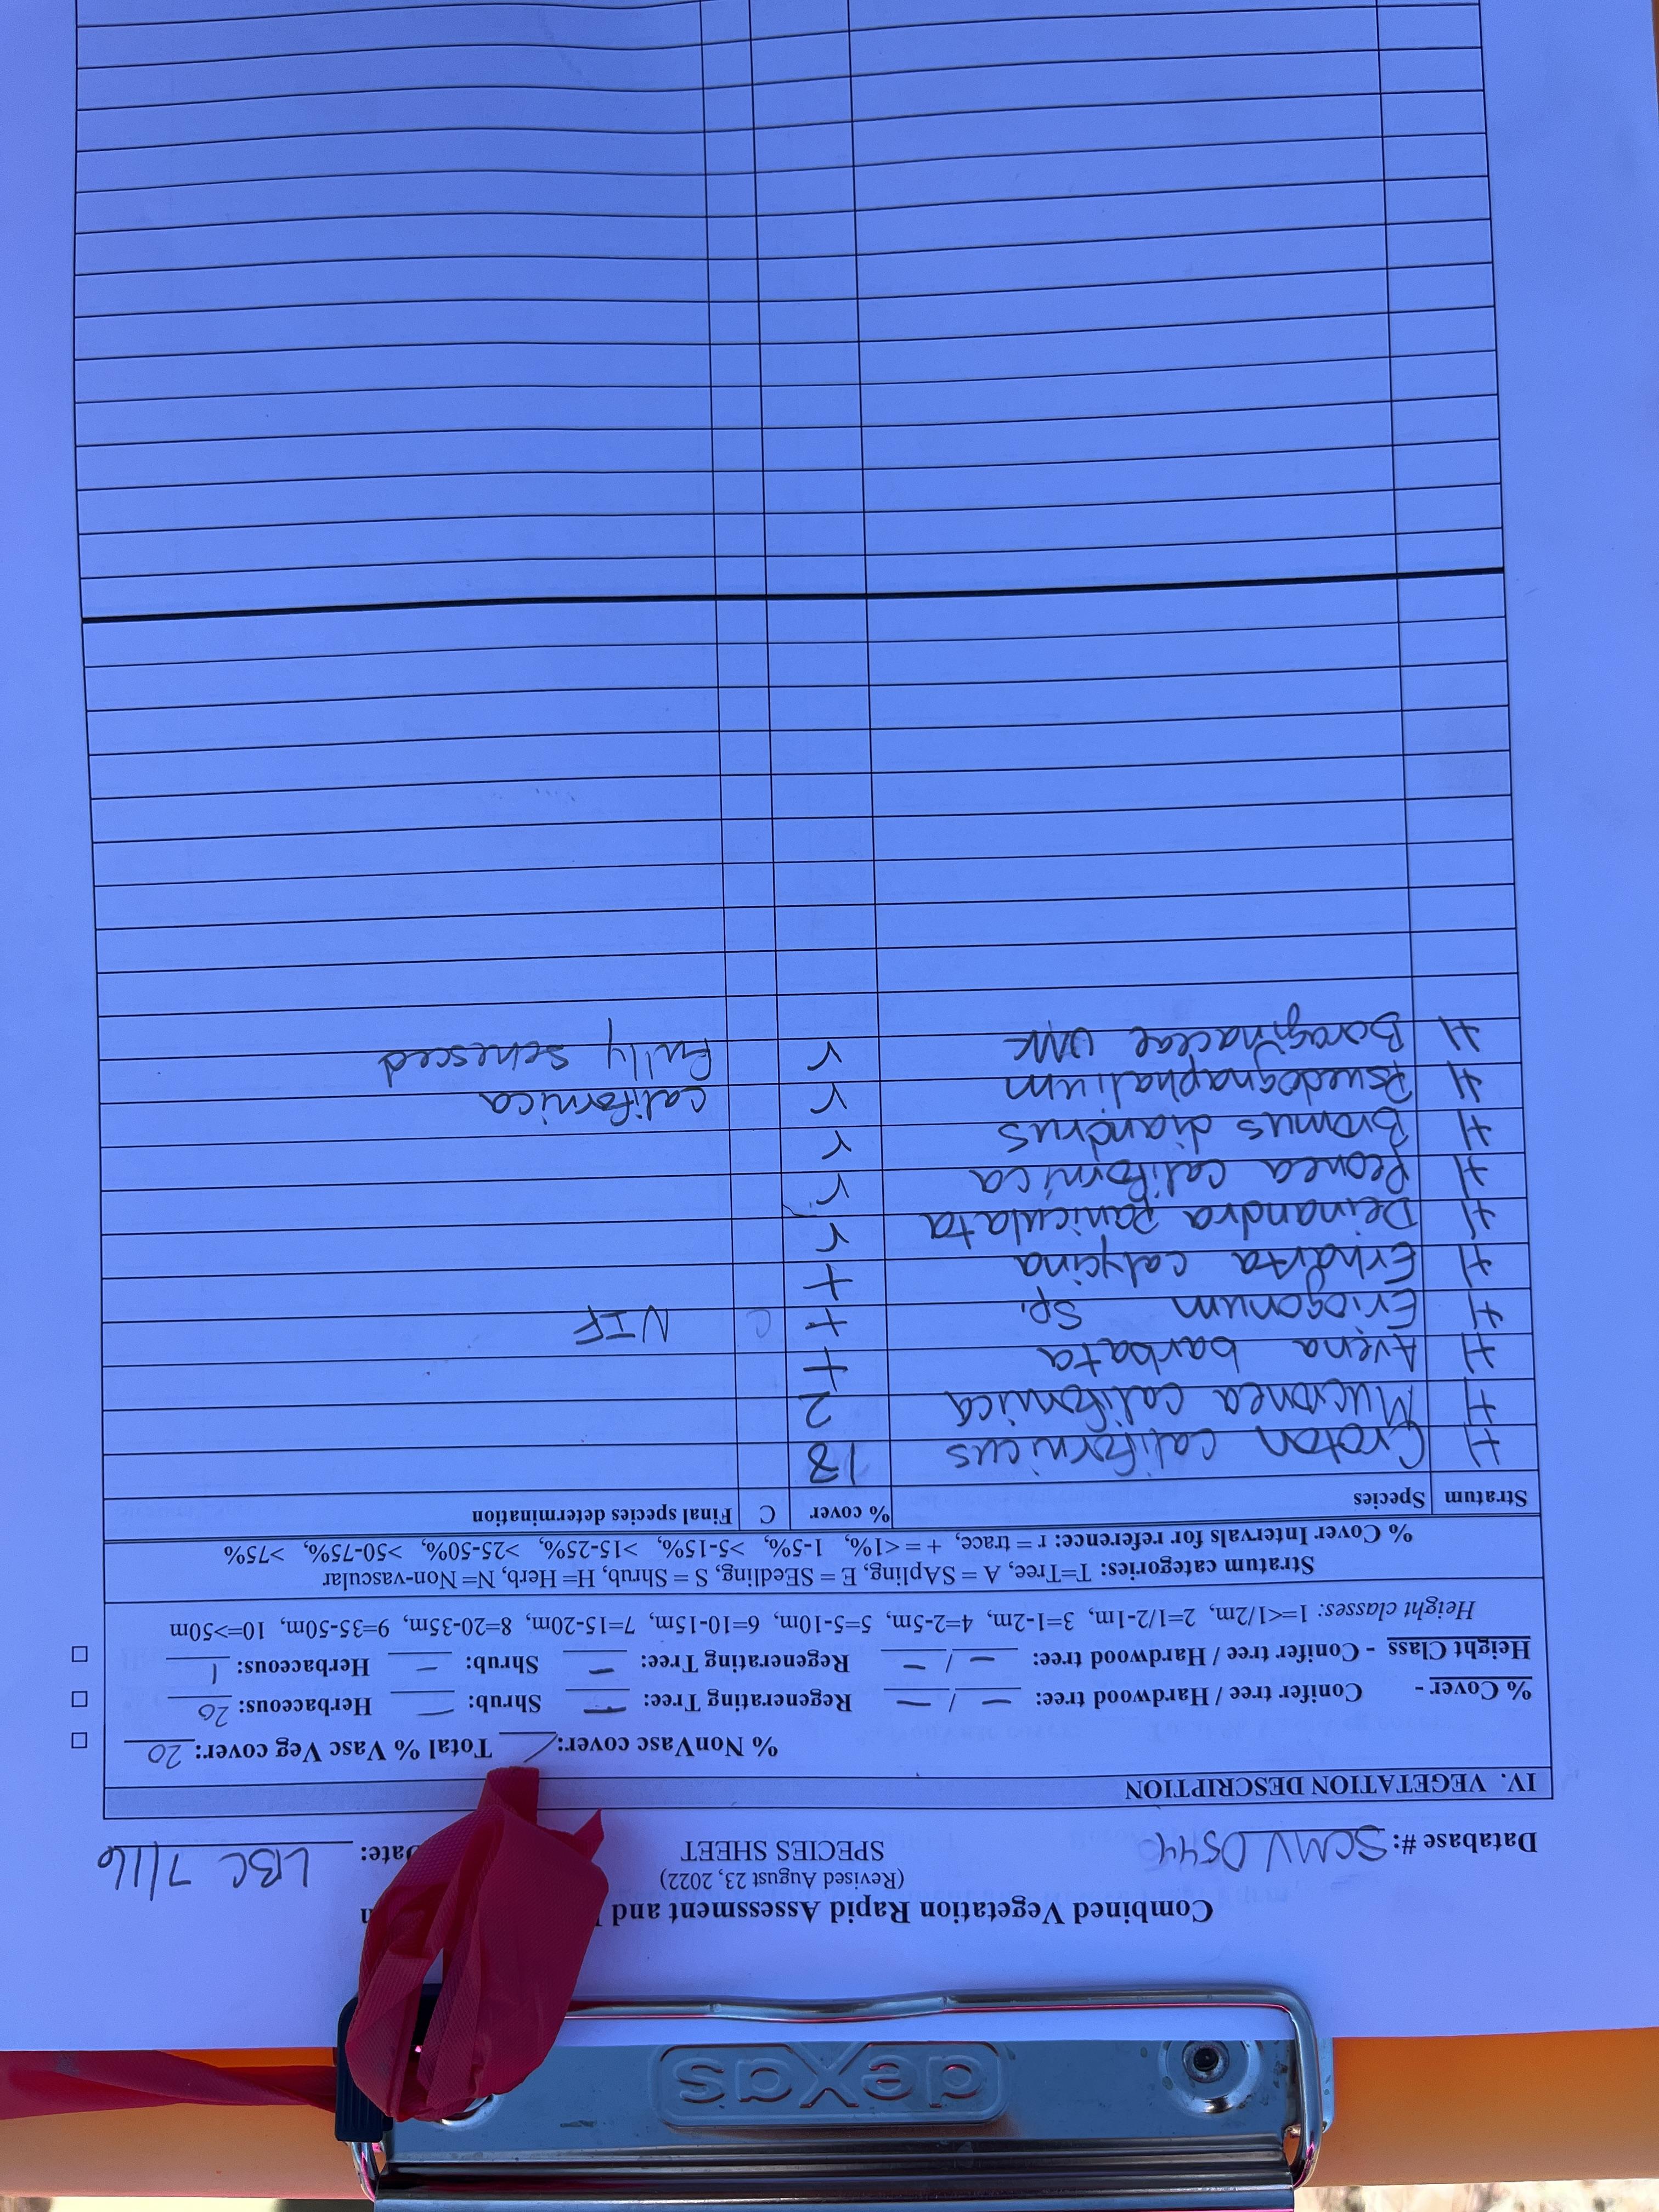 dexas
Combined Vegetation Rapid Assessment and
(Revised August 23, 2022)
SPECIES SHEET
Database #: SCMV0544 Date: LBC 7/16
IV. VEGETATION DESCRIPTION
% NonVasc cover: Total % Vasc Veg cover: 20
% Cover - Conifer tree / Hardwood tree: — / — Regenerating Tree: — Shrub: — Herbaceous: 20
Height Class - Conifer tree / Hardwood tree: — / — Regenerating Tree: — Shrub: — Herbaceous: 1
Height classes: 1=<1/2m, 2=1/2-1m, 3=1-2m, 4=2-5m, 5=5-10m, 6=10-15m, 7=15-20m, 8=20-35m, 9=35-50m, 10=>50m
Stratum categories: T=Tree, A = SApling, E = SEedling, S = Shrub, H= Herb, N= Non-vascular
% Cover Intervals for reference: r = trace, + = <1%, 1-5%, >5-15%, >15-25%, >25-50%, >50-75%, >75%
Stratum Species % cover C Final species determination
H Croton californicus 18
H Mucronea californica 2
H Avena barbata +
H Eriogonum sp. + C NIF
H Erharta calycina +
H Deinandra paniculata r
H Peonea california r
H Bromus diandrus r
H Psuedognaphalium r californica
H Boraginaceae UNK r Fully senesced